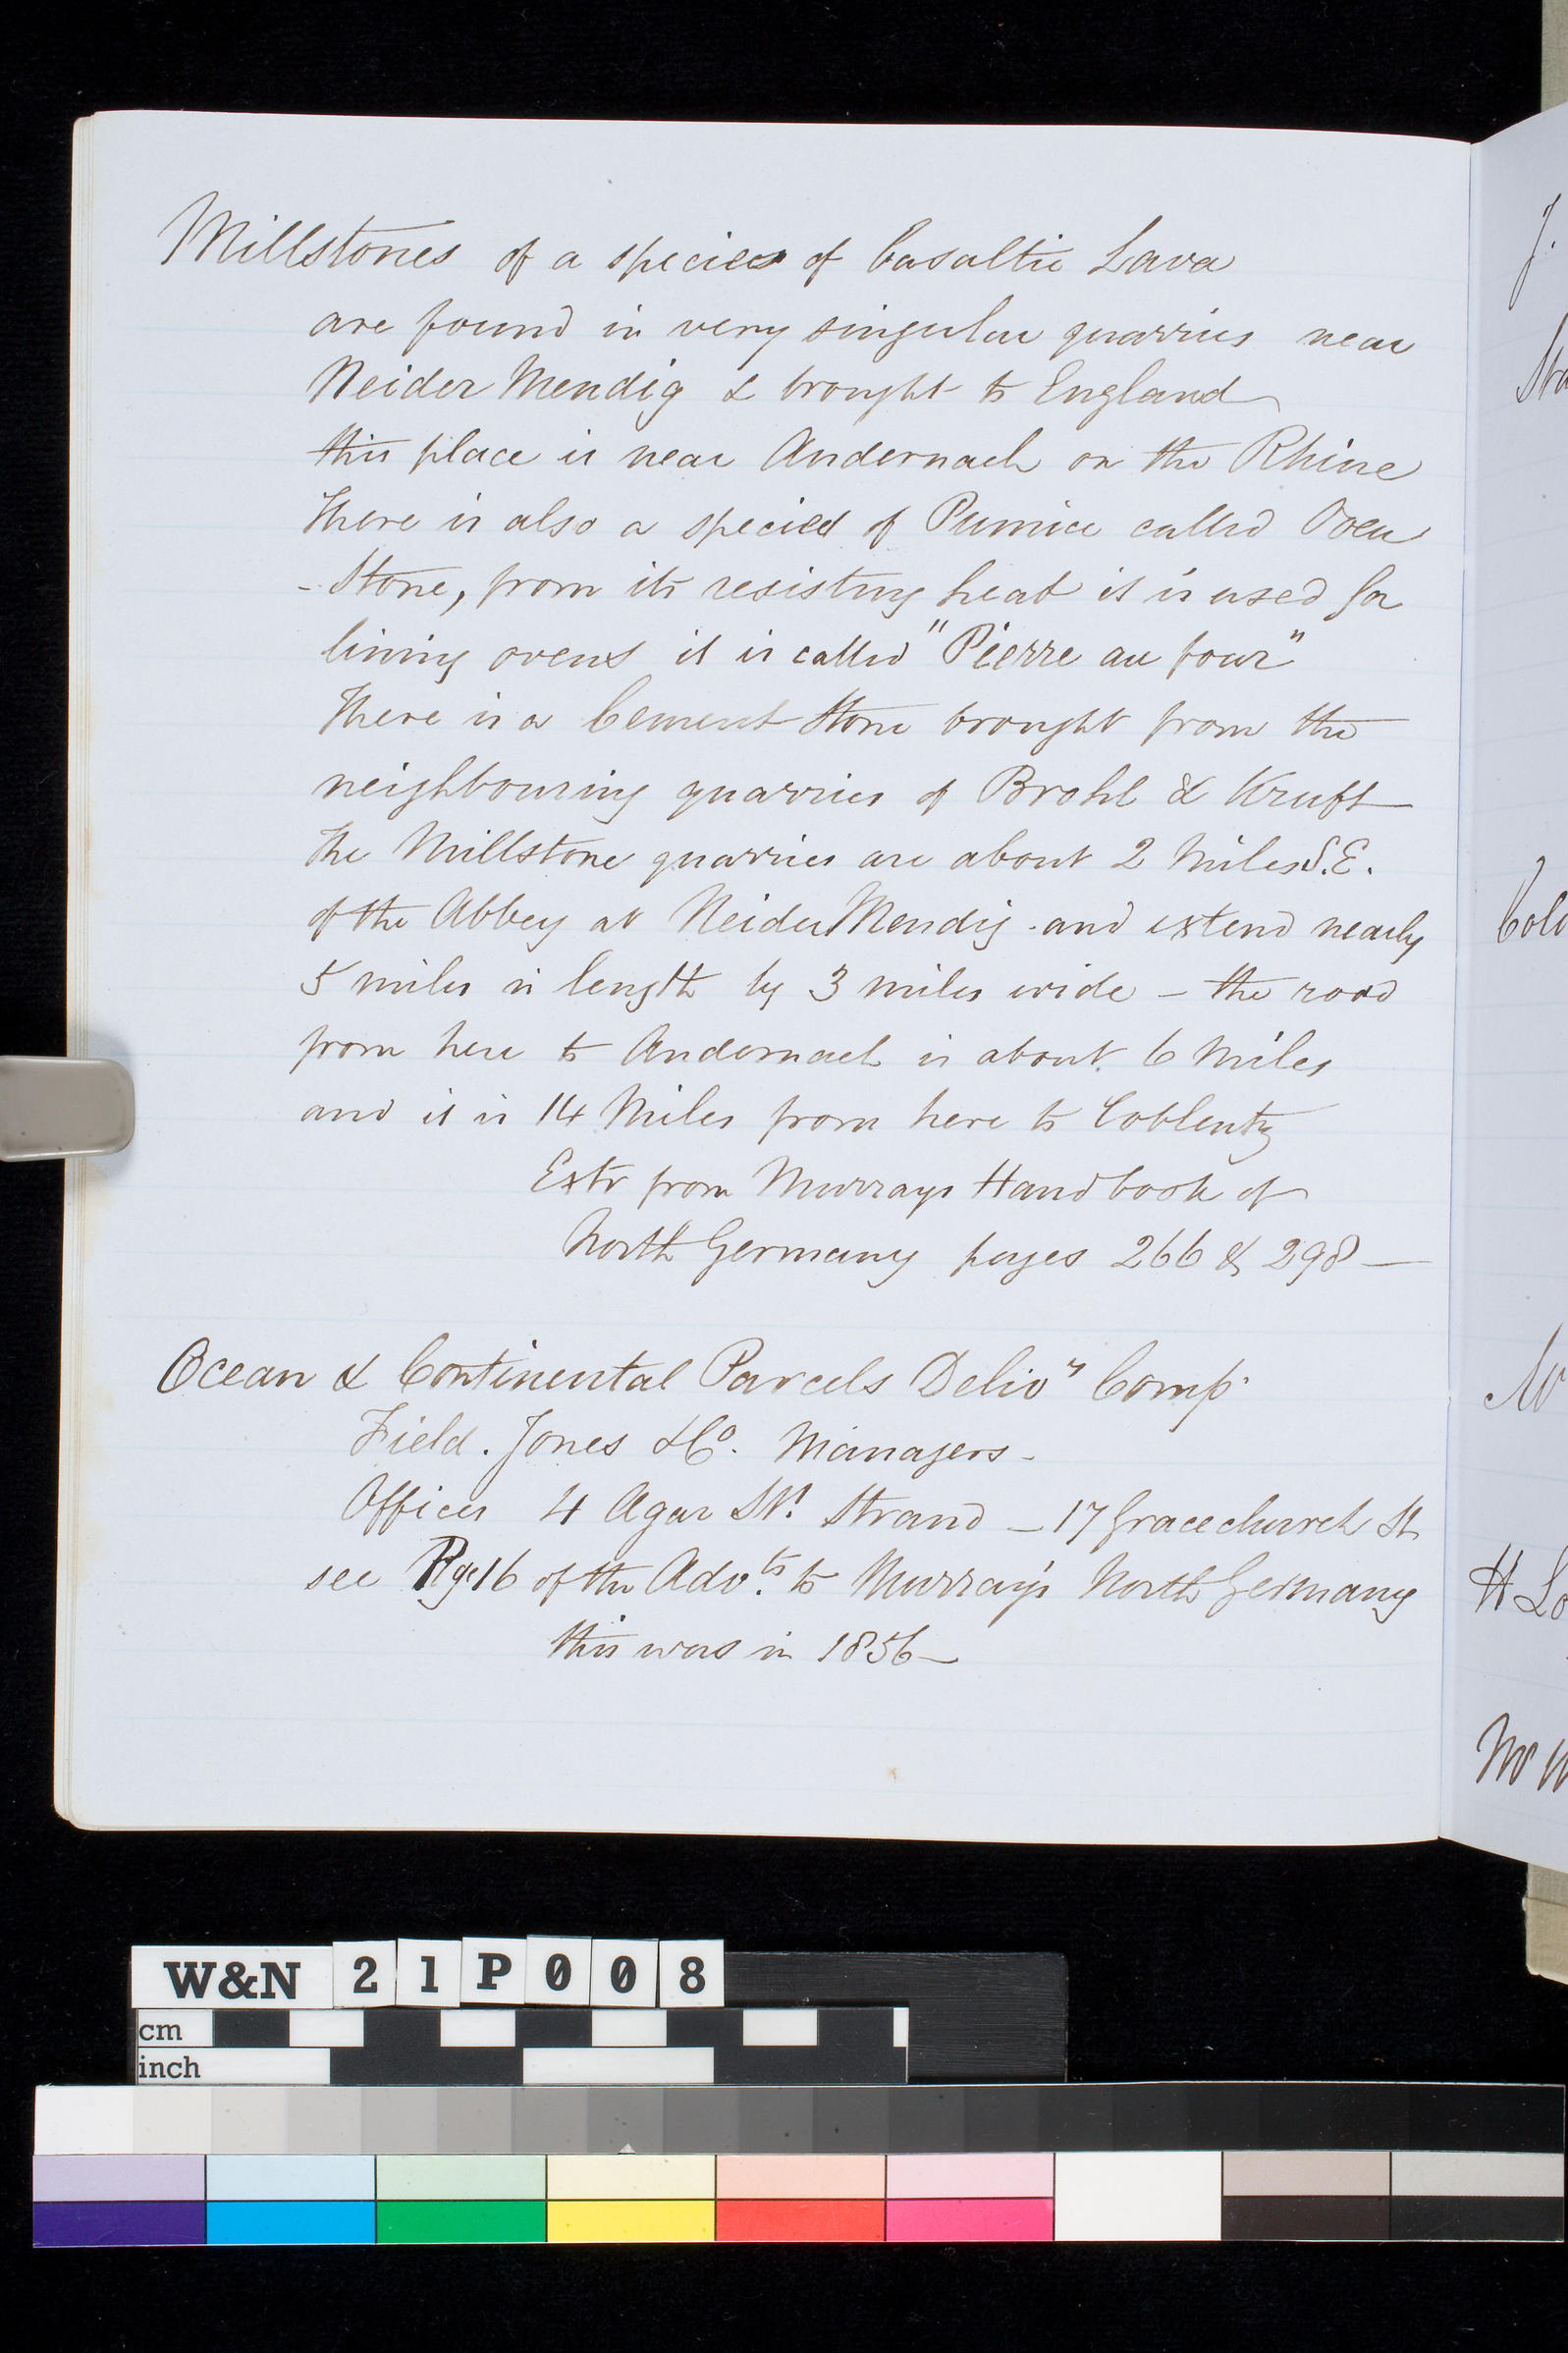 Millstones of a species of basaltic Lava
are found in very singular quarries near
Neider Mendig & brought to England
this place is near Andernach on the Rhine
There is also a species of Pumice called Oven
- Stone, from its resisting heat it is used for
lining ovens it is called "Pierre au four"
There is a Cement Stone brought from the
neighbouring quarries of Brohl & Kruft
The Millstone quarries are about 2 Miles S.E.
of the Abbey at Neider Mendig - and extend nearly
5 miles in length by 3 miles wide - the road
from here to Andernach is about 6 Miles
and it is 14 Miles from here to Coblentz
Extr from Murrays Handbook of
North Germany pages 266 & 298 —
Ocean & Continental Parcels Delivy Comp.
Field. Jones & Co. Managers -
Offices 4 Agar St. Strand - 17 Gracechurch St
see Pge 16 of the Advts. to Murray's North Germany
this was in 1856 -
J.
Sta
Colo
H Lo
W&N 21P008
cm
inch